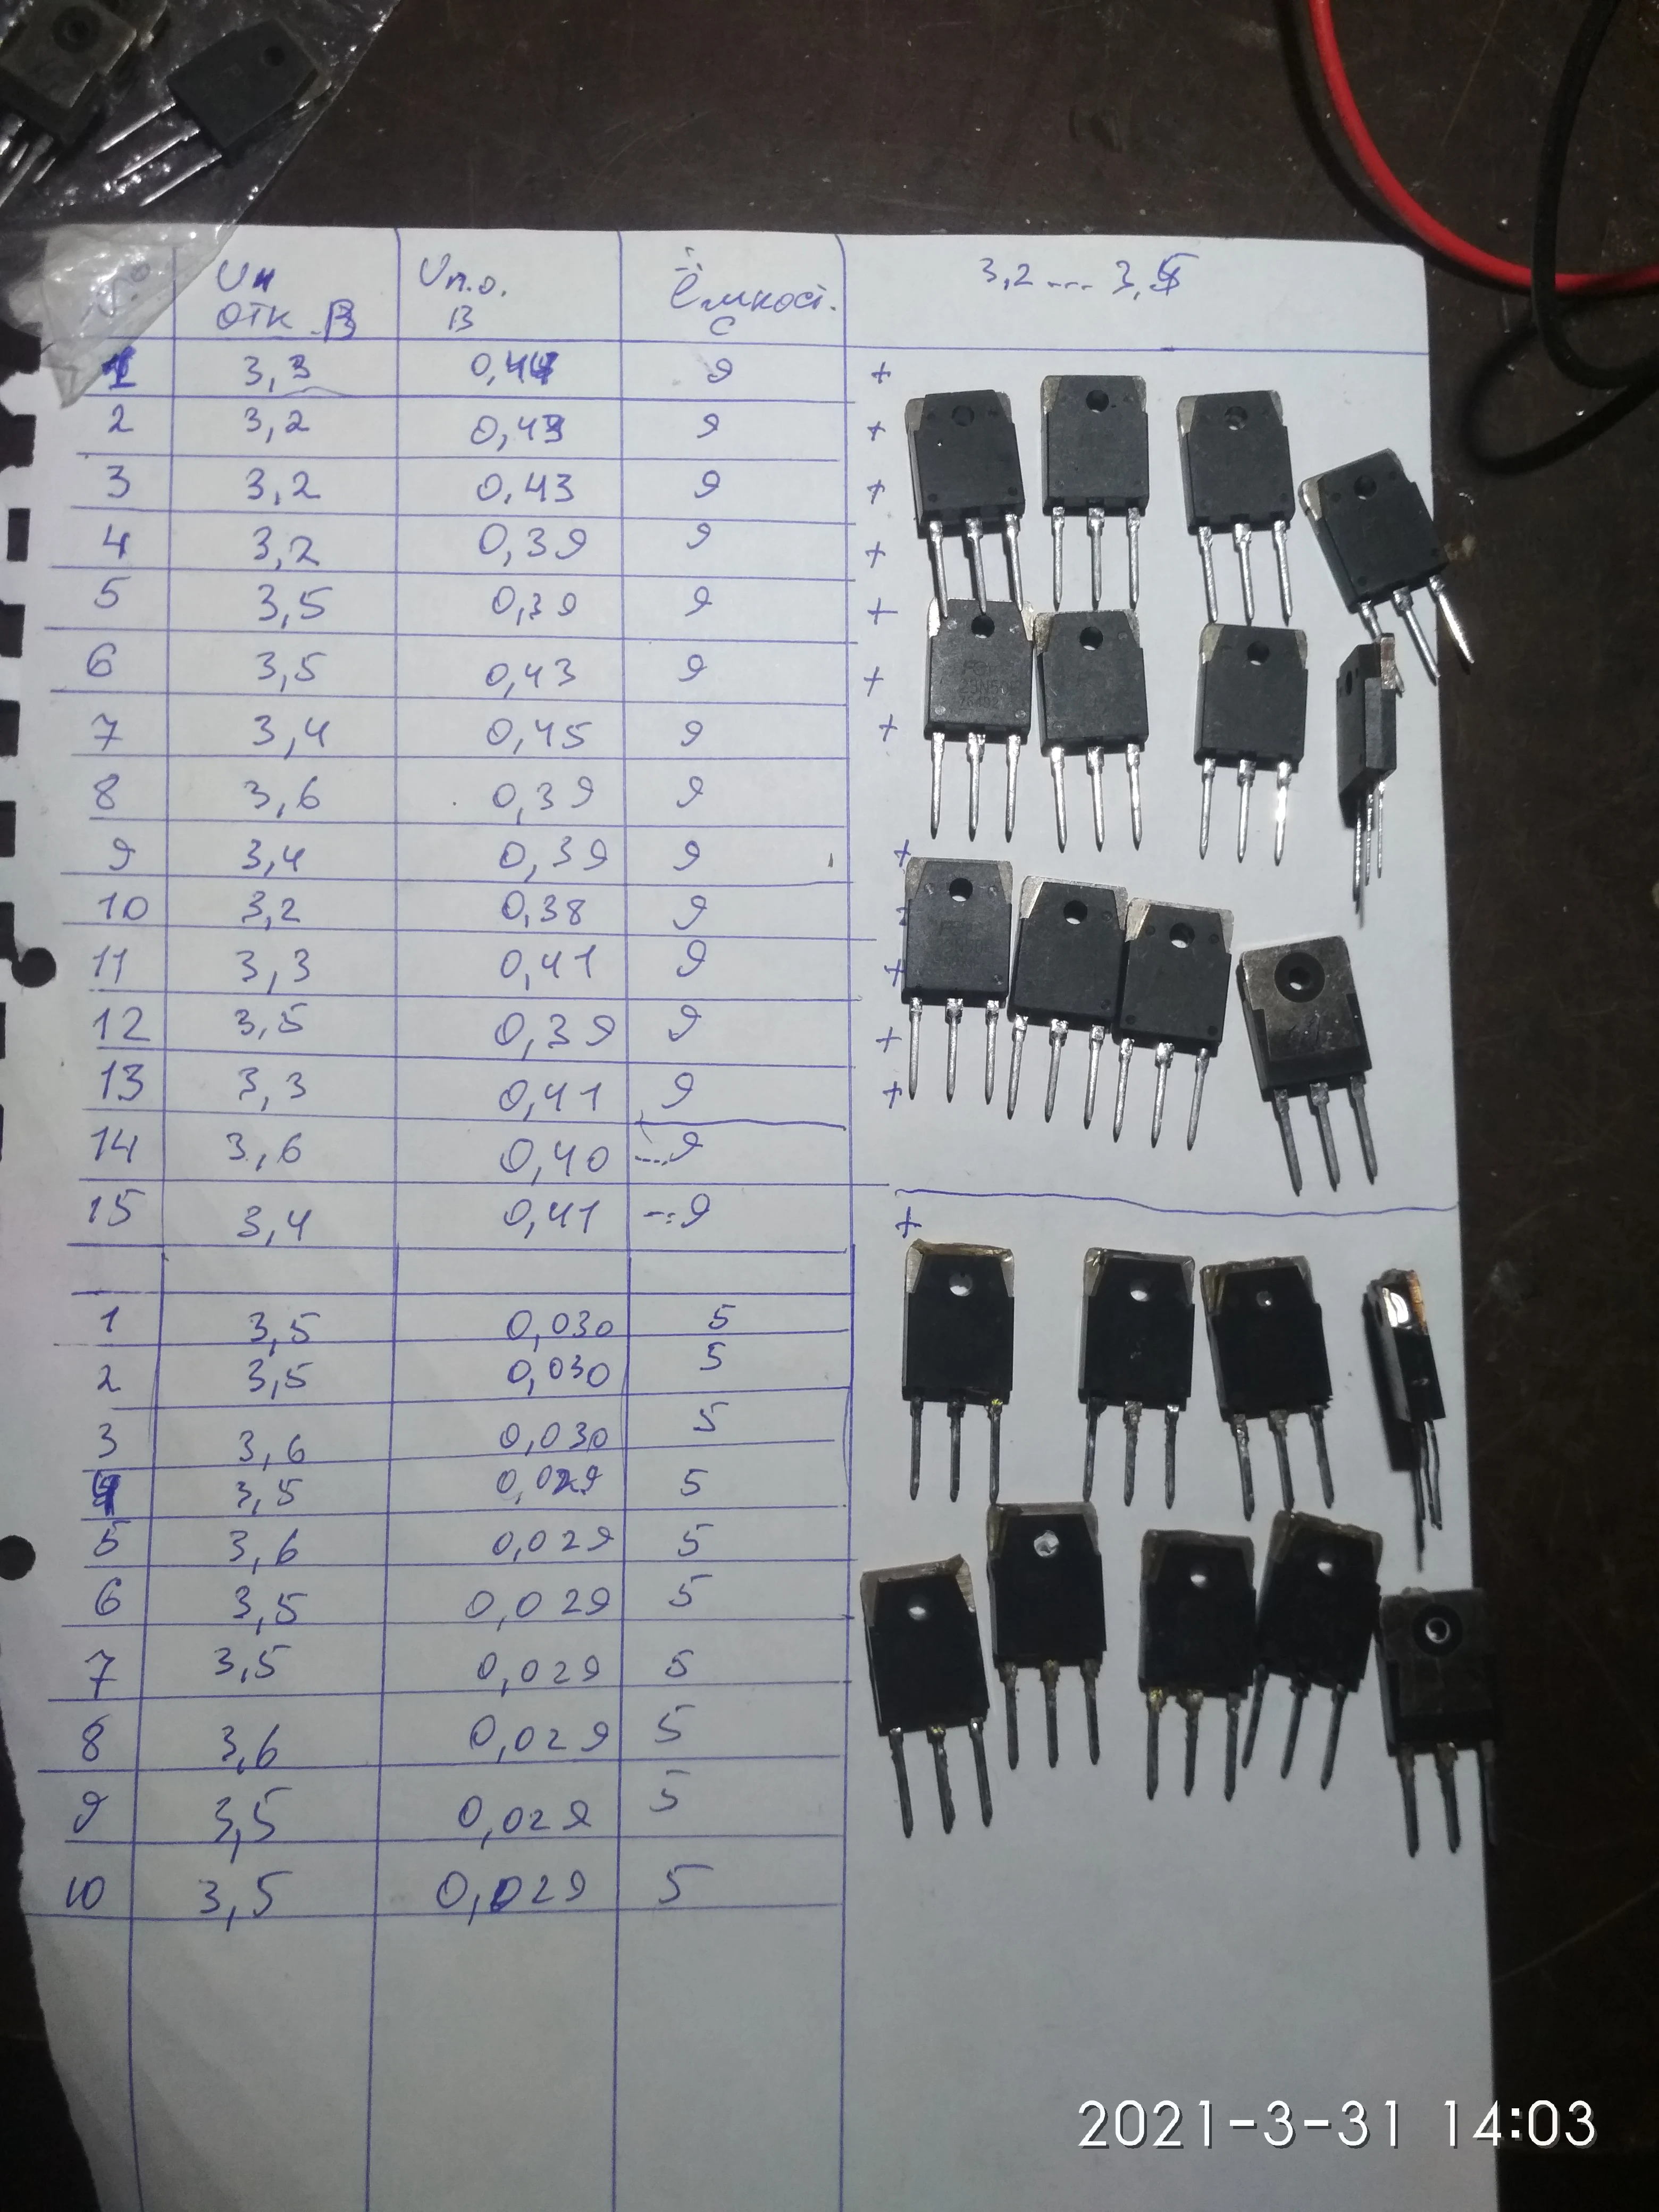 Uн Uп.о. Ёмкост. 3,2 --- 3,5
отк. В В С
1 3,3 0,44 9 +
2 3,2 0,43 9 +
3 3,2 0,43 9 +
4 3,2 0,39 9 +
5 3,5 0,39 9 +
6 3,5 0,43 9 +
7 3,4 0,45 9 +
8 3,6 0,39 9
9 3,4 0,39 9 +
10 3,2 0,38 9
11 3,3 0,41 9 +
12 3,5 0,39 9 +
13 3,3 0,41 9 +
14 3,6 0,40 ---9
15 3,4 0,41 --:9 +
1 3,5 0,030 5
2 3,5 0,030 5
3 3,6 0,030 5
4 3,5 0,029 5
5 3,6 0,029 5
6 3,5 0,029 5
7 3,5 0,029 5
8 3,6 0,029 5
9 3,5 0,029 5
10 3,5 0,029 5
2021-3-31 14:03